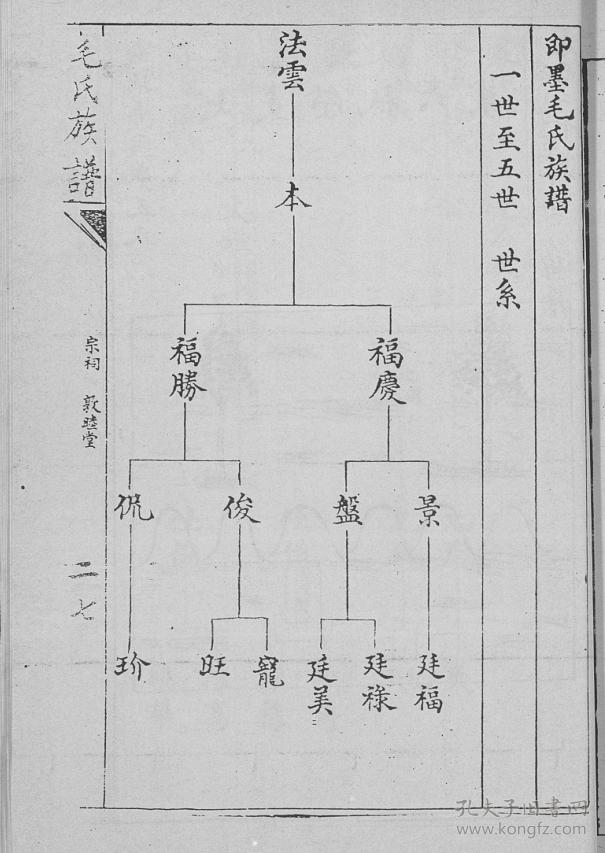 即墨毛氏族譜
一世至五世 世系
法雲
本
福慶
福勝
景
盤
俊
侃
廷福
廷祿
廷美
寵
旺
玠
毛氏族譜
宗祠 敦睦堂
二七
孔夫子旧书网
www.kongfz.com